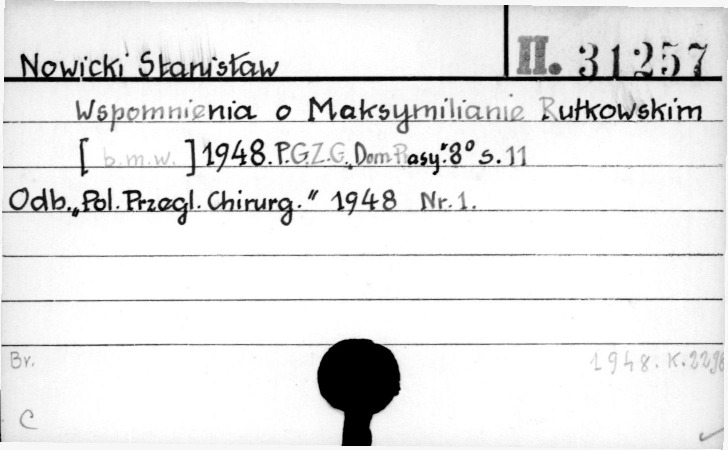 Nowicki Stanisław II. 31257
Wspomnienia o Maksymilianie Rutkowskim
[b.m.w.] 1948. P.G.Z.G. „Dom Prasy". 8° s. 11
Odb. „Pol. Przegl. Chirurg." 1948 Nr. 1.
Br. 1948. K. 2296
C